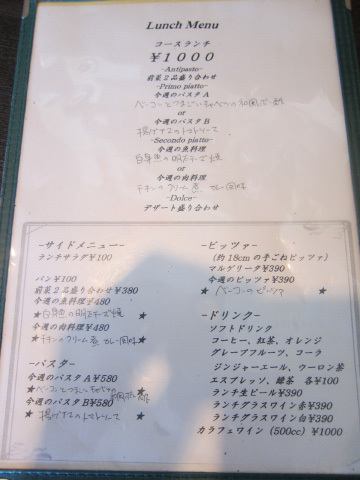 Lunch Menu
コースランチ
￥1000
-Antipasto-
前菜２品盛り合わせ
-Primo piatto-
今週のパスタＡ
ベーコンと の和風
or
今週のパスタＢ
揚げナスのトマトソース
-Secondo piatto-
今週の魚料理
白身魚の明太チーズ焼
or
今週の肉料理
チキンのクリーム煮 カレー風味
-Dolce-
デザート盛り合わせ
-サイドメニュー-
ランチサラダ¥100
パン¥100
前菜２品盛り合わせ¥380
今週の魚料理¥480
★白身魚の明太チーズ焼
今週の肉料理¥480
★チキンのクリーム煮 カレー風味
-パスタ-
今週のパスタＡ¥580
★ベーコンと 和風 ★
今週のパスタＢ¥580
★揚げナスのトマトソース★
-ピッツァ-
(約18cmの手ごねピッツァ)
マルゲリータ¥390
今週のピッツァ¥390
★ベーコンのピッツァ ★
-ドリンク-
ソフトドリンク
コーヒー、紅茶、オレンジ
グレープフルーツ、コーラ
ジンジャーエール、ウーロン茶
エスプレッソ、緑茶 各¥100
ランチ生ビール¥390
ランチグラスワイン赤¥390
ランチグラスワイン白¥390
カラフェワイン (500cc) ¥1000